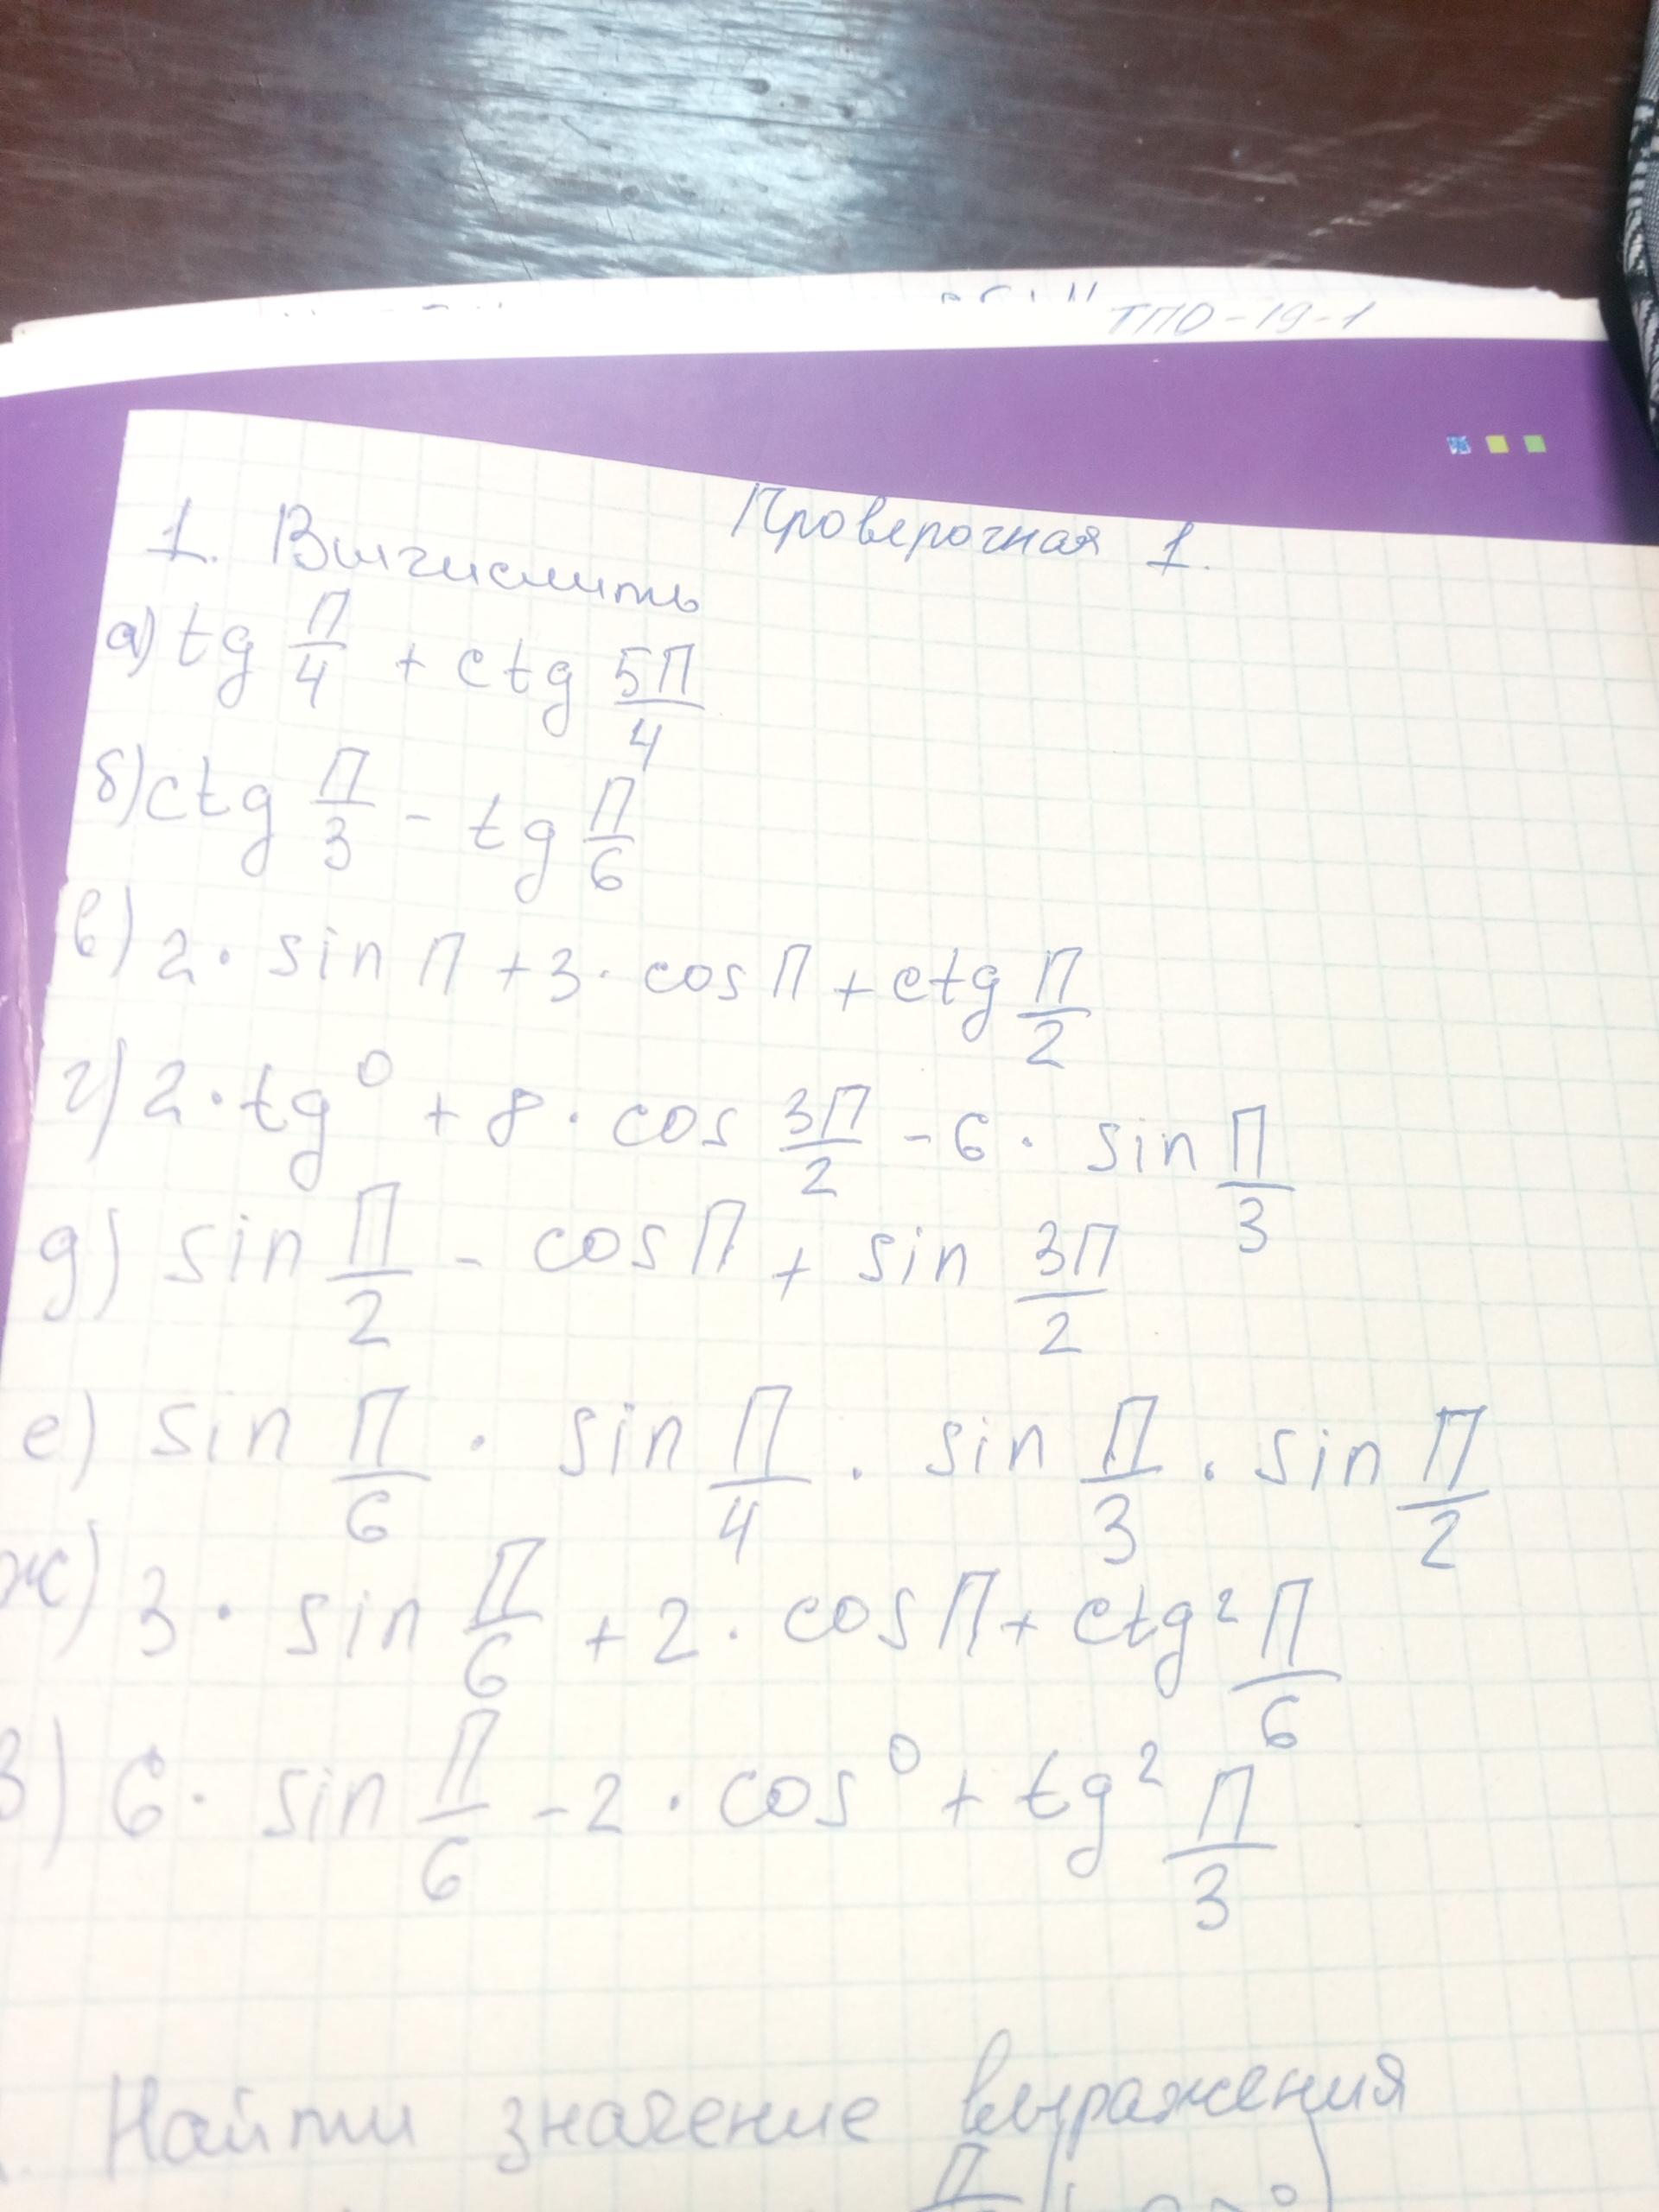 ТПО-19-1
Проверочная 1.
1. Вычислить
а) tg П/4 + ctg 5П/4
б) ctg П/3 - tg П/6
в) 2 · sin П + 3 · cos П + ctg П/2
г) 2 · tg 0 + 8 · cos 3П/2 - 6 · sin П/3
д) sin П/2 - cos П + sin 3П/2
е) sin П/6 · sin П/4 · sin П/3 · sin П/2
ж) 3 · sin П/6 + 2 · cos П + ctg² П/6
з) 6 · sin П/6 - 2 · cos 0 + tg² П/3
Найти значение выражения